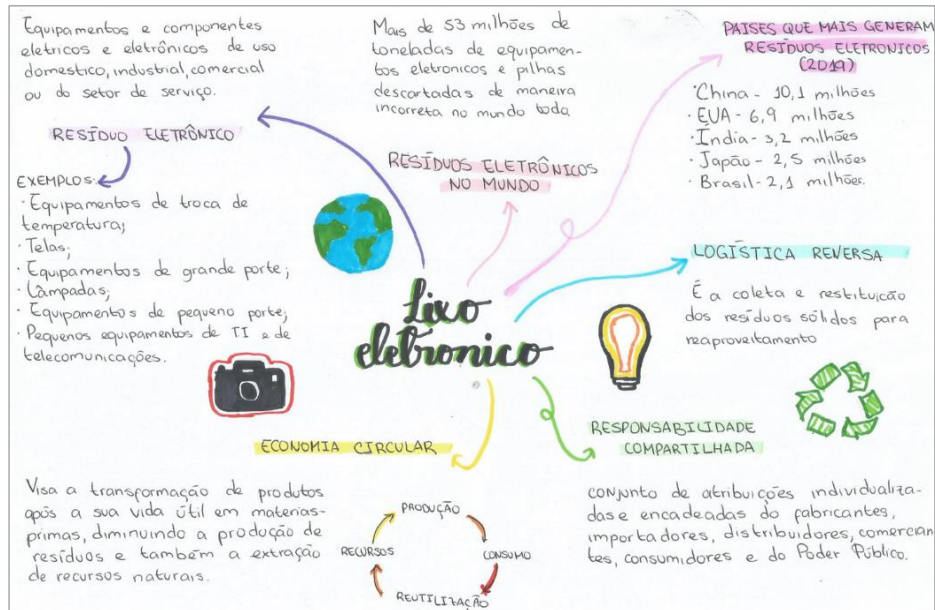 Equipamentos e componentes
eletricos e eletrônicos de uso
domestico, industrial, comercial
ou do setor de serviço.
RESÍDUO ELETRÔNICO
EXEMPLOS:
· Equipamentos de troca de
temperatura;
· Telas;
· Equipamentos de grande porte;
· Lâmpadas;
· Equipamentos de pequeno porte;
· Pequenos equipamentos de TI e de
telecomunicações.
Mais de 53 milhões de
toneladas de equipamen-
tos eletronicos e pilhas
descartadas de maneira
incorreta no mundo todo
RESÍDUOS ELETRÔNICOS
NO MUNDO
PAISES QUE MAIS GENERAM
RESÍDUOS ELETRONICOS
(2019)
· China - 10,1 milhões
· EUA - 6,9 milhões
· Índia - 3,2 milhões
· Japão - 2,5 milhões
· Brasil - 2,1 milhões.
Lixo
eletronico
LOGÍSTICA REVERSA
É a coleta e restituição
dos resíduos sólidos para
reaproveitamento
ECONOMIA CIRCULAR
Visa a transformação de produtos
após a sua vida útil em materias-
primas, diminuindo a produção de
resíduos e também a extração
de recursos naturais.
PRODUÇÃO
CONSUMO
REUTILIZAÇÃO
RECURSOS
RESPONSABILIDADE
COMPARTILHADA
conjunto de atribuições individualiza-
das e encadeadas do fabricantes,
importadores, distribuidores, comercian
tes, consumidores e do Poder Público.